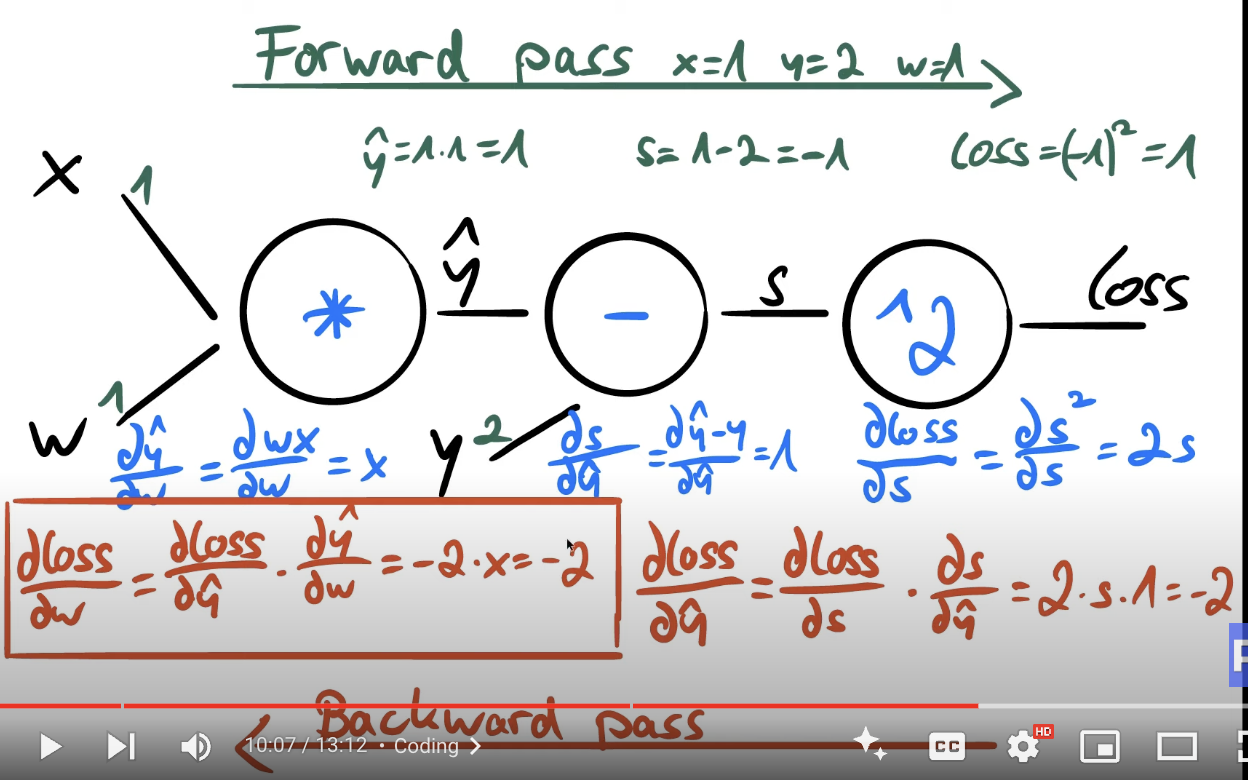 Forward pass x=1 y=2 w=1
ŷ=1·1=1 s=1-2=-1 loss=(-1)²=1
x 1
* ŷ - s ^2 loss
w 1
y 2
∂ŷ/∂w = ∂wx/∂w = x
∂s/∂ŷ = ∂ŷ-y/∂ŷ = 1
∂loss/∂s = ∂s²/∂s = 2s
∂loss/∂w = ∂loss/∂ŷ · ∂ŷ/∂w = -2·x = -2
∂loss/∂ŷ = ∂loss/∂s · ∂s/∂ŷ = 2·s·1 = -2
Backward pass
10:07 / 13:12 • Coding
CC
HD